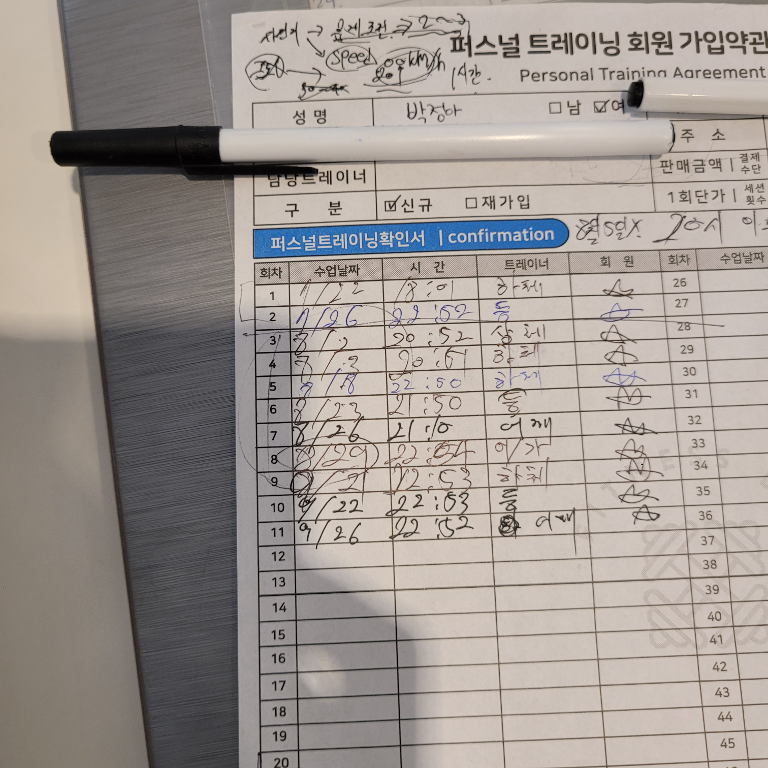 speed
200km/h
1시간.
퍼스널 트레이닝 회원 가입약관
Personal Training Agreement
성 명 박정아 □ 남 ☑ 여
주 소
담당트레이너 판매금액 | 결제수단
구 분 ☑ 신규 □ 재가입 1회단가 | 세션횟수
퍼스널트레이닝확인서 | confirmation
회차 수업날짜 시 간 트레이너 회 원 회차 수업날짜
1 7/22 하체 26
2 7/26 22:52 등 27
3 20:52 상체 28
4 20:51 29
5 22:50 하체 30
6 8/23 21:50 등 31
7 8/26 21:10 어깨 32
8 8/29 22:04 33
9 22:53 하체 34
10 9/22 22:53 등 35
11 9/26 22:52 어깨 36
12 37
13 38
14 39
15 40
16 41
17 42
18 43
19 44
20 45